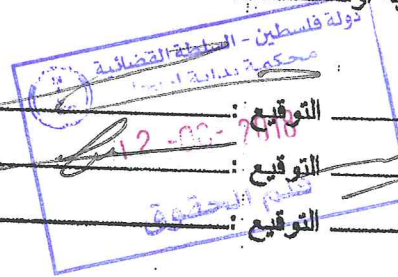 دولة فلسطين - السلطة القضائية
محكمة بداية
التوقيع :
12 -09- 2018
التوقيع :
قلم الحقوق
التوقيع :